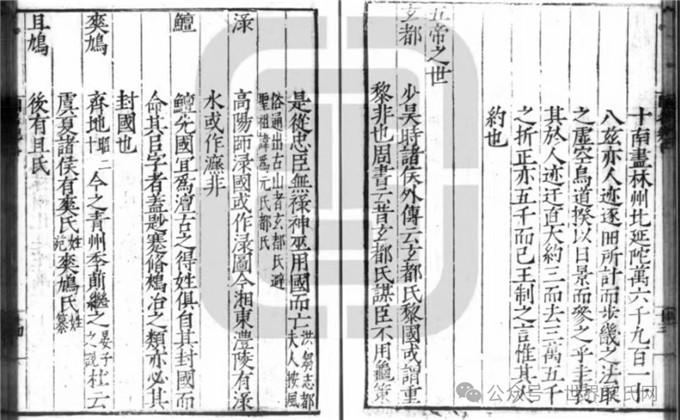 十南盡林州北延陀萬六千九百一十
八茲亦人迹逐田所計而步幾之法取
之虛空鳥道揆以日景而乘之乎圭表
其於人迹迂直大約三而去三萬五千
之折正亦五千而已王制之言惟其
約也
五帝之世
玄都
少昊時諸侯外傳云玄都氏黎國或謂重
黎非也周書云昔玄都氏謀臣不用龜策
是從忠臣無祿神巫用國而亡洪芻志都夫人按風
俗通出古山者玄都氏避聖祖諱爲元氏都氏
渌
高陽師渌國或作渌圖今湘東澧陵有渌
水或作非
鱣
鱣先國宜爲澶古之得姓俱自其封國而
命其臣字者蓋尠蹇脩冶之類亦必其
封國也
爽鳩
齊地二今之青州季萴繼之晏子之說杜云
虞夏諸侯有爽氏姓苑爽鳩氏姓纂
且鳩
後有且氏
公众号·世界氏网